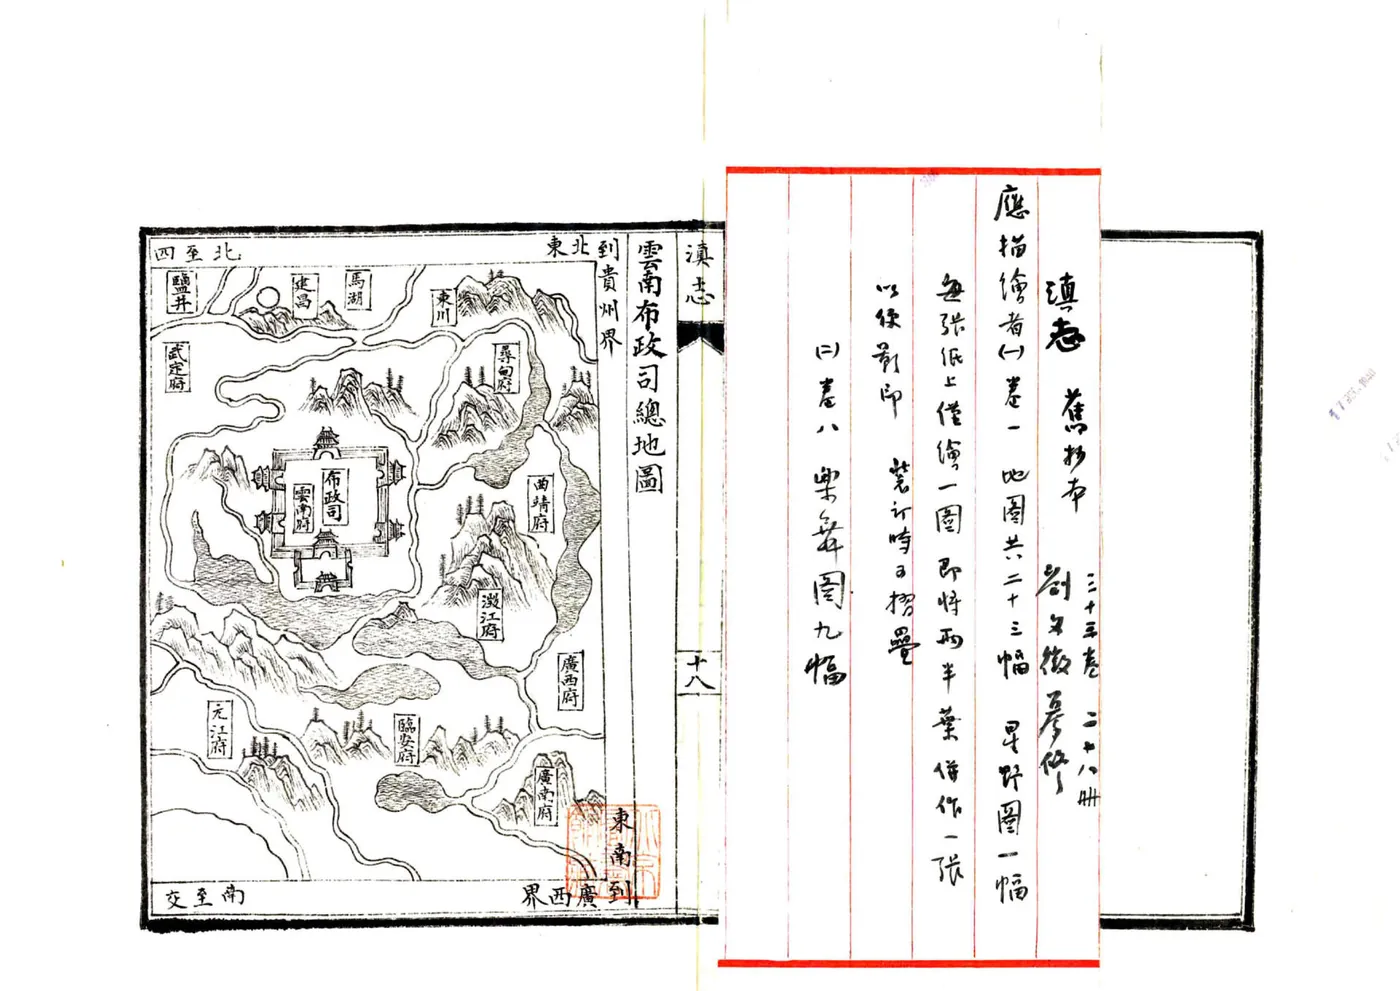 滇志 舊抄本 三十三卷 二十八册
劉文徵纂修
應描繪者㈠卷一 地圖共二十三幅 星野圖一幅
每張紙上僅繪一圖 即將兩半葉併作一張
以便影印 裝訂時可摺疊
㈡卷八 樂舞圖九幅
滇志
十八
雲南布政司總地圖
東北到貴州界
北至四
東南到廣西界
南至交
鹽井
建昌
馬湖
東川
武定府
尋甸府
布政司
雲南府
曲靖府
澂江府
廣西府
元江府
臨安府
廣南府